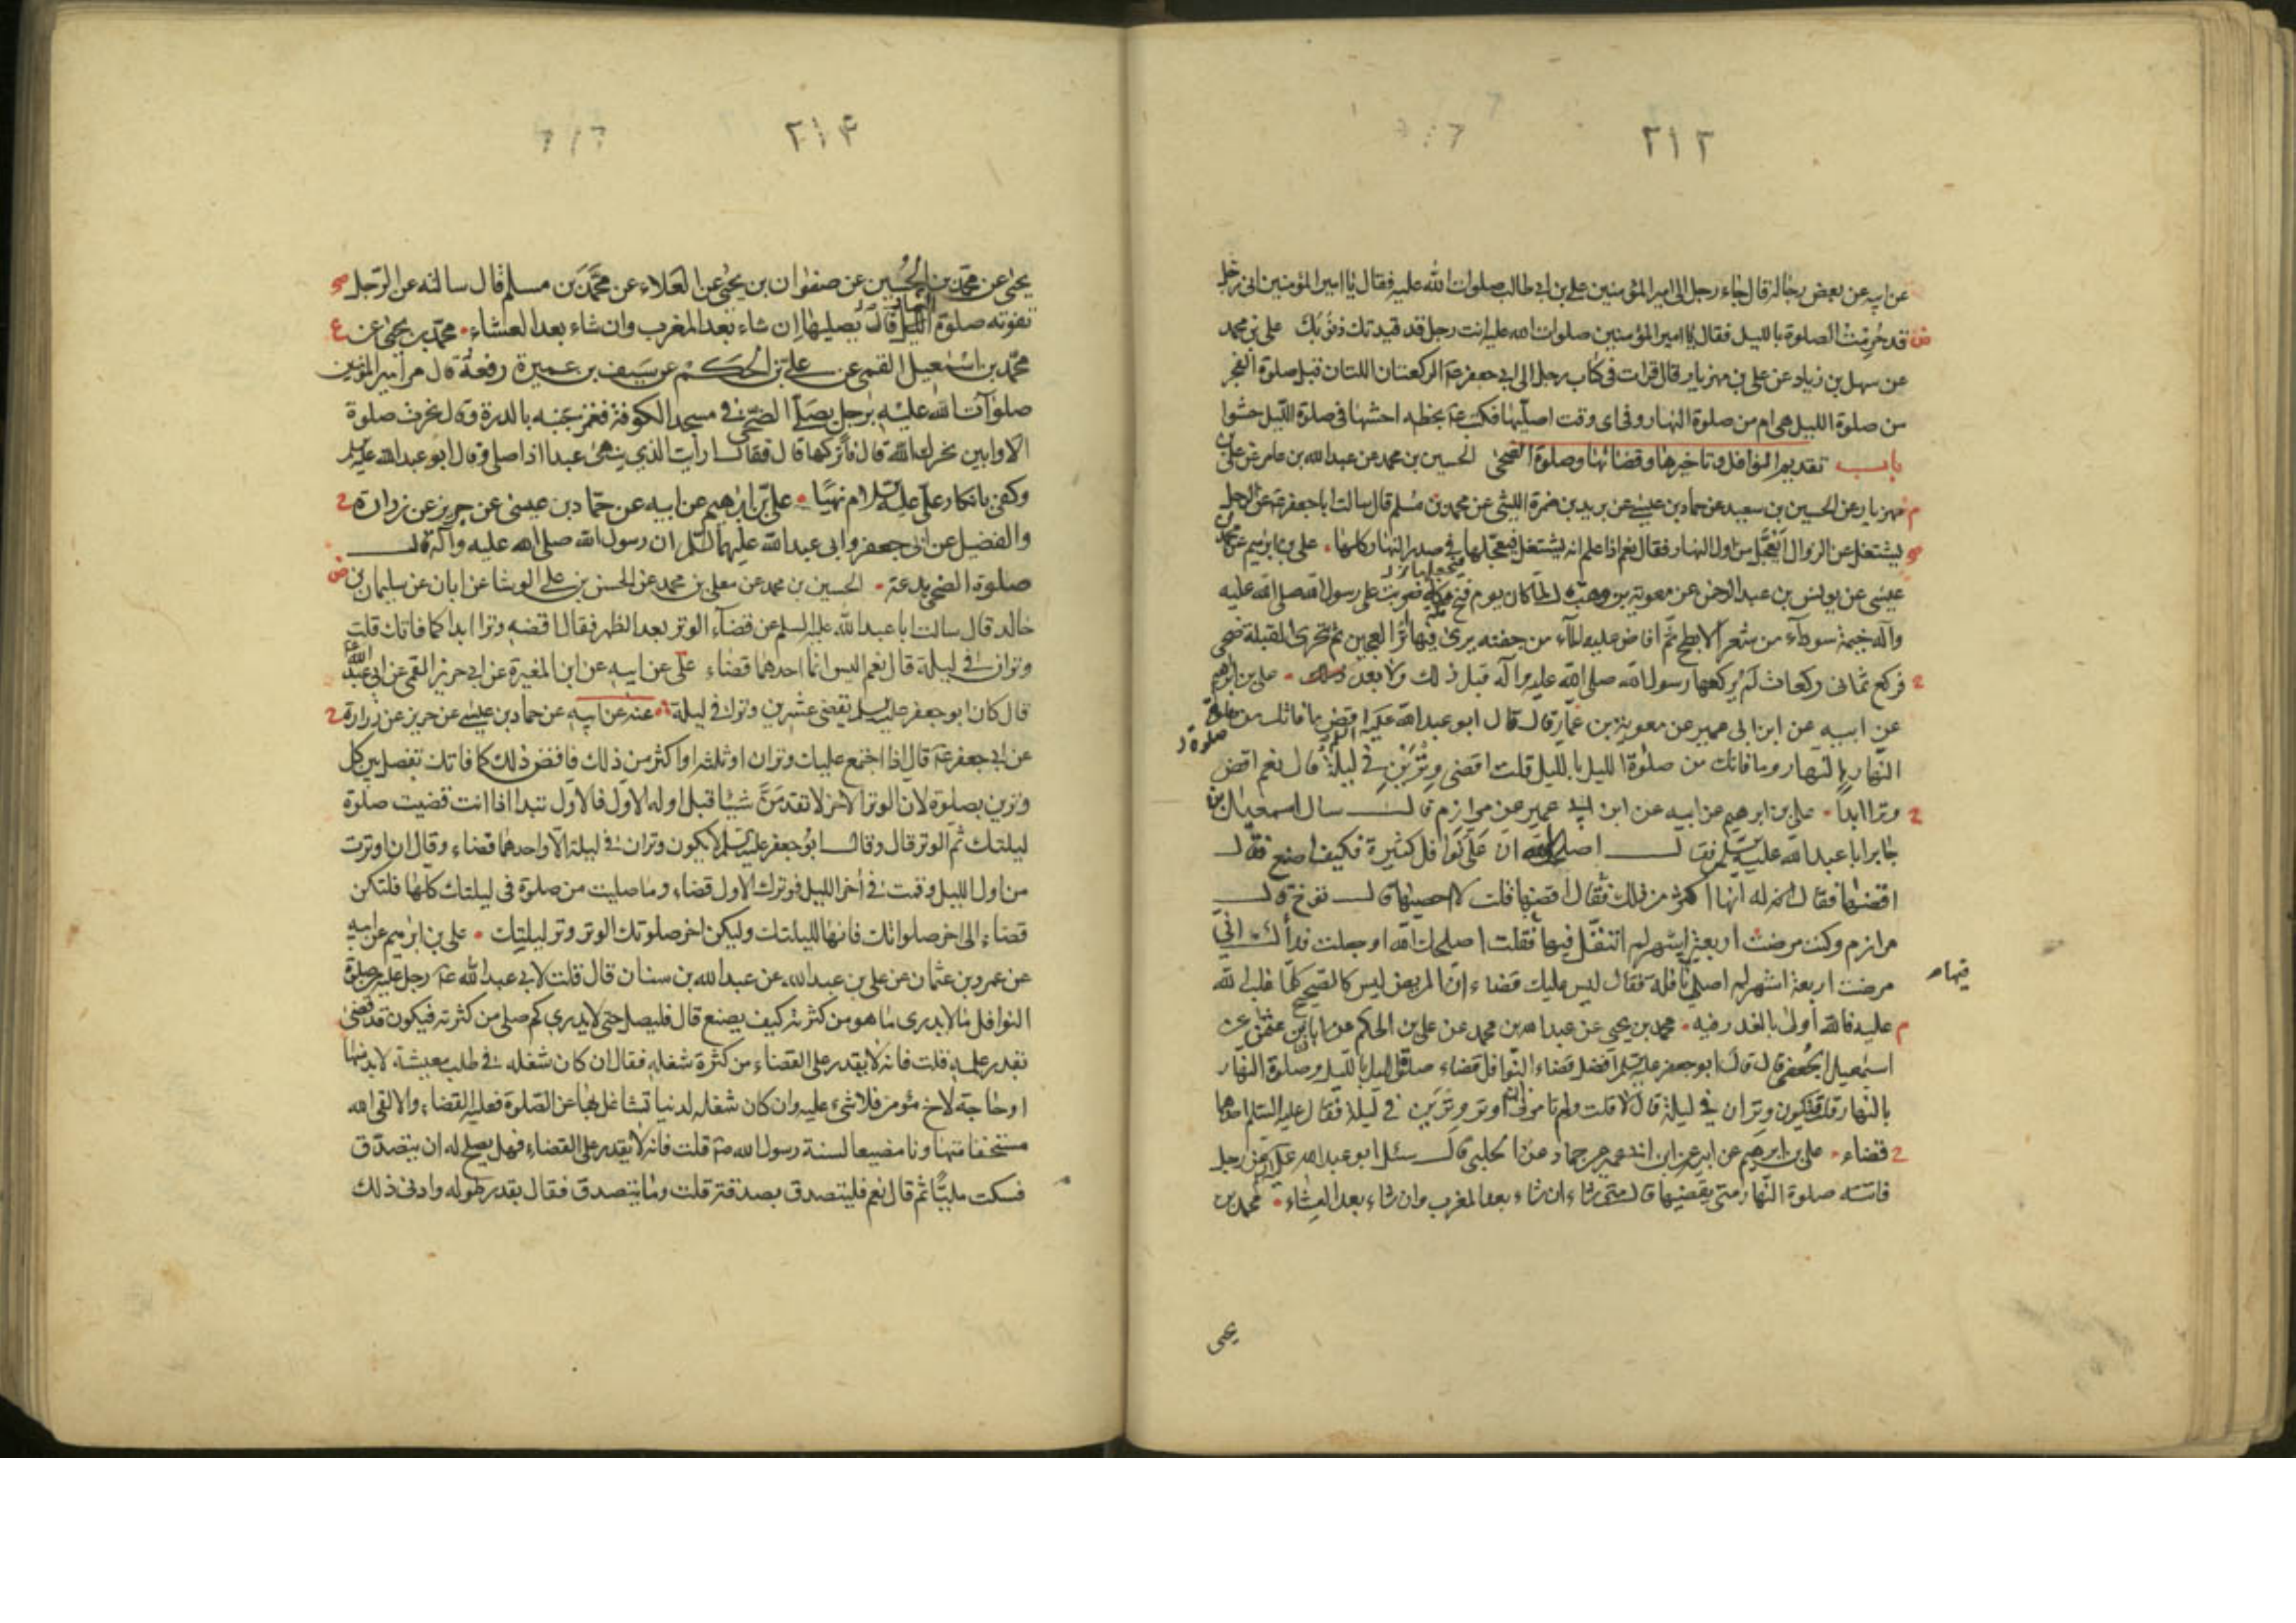 ٢١٣
عن ابيه عن بعض رجاله قال جاء رجل الى امير المؤمنين على بن ابى طالب صلوات الله عليه فقال يا امير المؤمنين انى رجل
قد حرمت الصلوة بالليل فقال يا امير المؤمنين صلوات الله عليه انت رجل قد قيدتك ذنوبك على بن محمد
عن سهل بن زياد عن على بن مهزيار قال قرات فى كتاب رجل الى ابى جعفر ع الركعتان اللتان قبل صلوة الفجر
من صلوة الليل هى ام من صلوة النهار وفى اى وقت اصليها فكتب ع بخطه احشها فى صلوة الليل حشوا
باب تقديم النوافل وتاخيرها وقضائها وصلوة الضحى الحسين بن محمد عن عبد الله بن عامر عن على بن
مهزيار عن الحسين بن سعيد عن حماد بن عيسى عن بريد بن ضمرة الليثى عن محمد بن مسلم قال سالت ابا جعفر ع عن الرجل
يشتغل عن الزوال ايعجل من اول النهار فقال نعم اذا علم انه يشتغل فيعجلها فى صدر النهار كلها على بن ابرهيم عن محمد بن
عيسى عن يونس بن عبد الرحمن عن معوية بن وهب قال لما كان يوم فتح مكة ضربت على رسول الله صلى الله عليه
وآله خيمة سوداء من شعر الابطح ثم افاض عليه الماء من جفنة يرى فيها اثر العجين ثم تحرى القبلة ضحى
فركع ثمانى ركعات لم يركعها رسول الله صلى الله عليه وآله قبل ذلك ولا بعد على بن ابرهيم
عن ابيه عن ابن ابى عمير عن معوية بن عمار قال قال ابو عبد الله عليه السلم اقض ما فاتك من صلوة
النهار بالنهار وما فاتك من صلوة الليل بالليل قلت اقضى وترين فى ليلة قال نعم اقض
وترا ابدا على بن ابرهيم عن ابيه عن ابن ابى عمير عن مرازم قال سال اسمعيل بن
جابر ابا عبد الله عليه السلم فقال اصلحك الله ان على نوافل كثيرة فكيف اصنع فقال
اقضها فقال له انها اكثر من ذلك فقال اقضها قلت لا احصيها قال توخ قال
مرازم وكنت مرضت اربعة اشهر لم اتنفل فيها فقلت اصلحك الله او جعلت فداك انى
مرضت اربعة اشهر لم اصلى نافلة فقال ليس عليك قضاء ان المريض ليس كالصحيح كلما غلب الله
عليه فالله اولى بالعذر فيه محمد بن يحيى عن عبد الله بن محمد عن على بن الحكم عن ابان بن عثمن عن
اسمعيل الجعفى قال قال ابو جعفر عليه السلم افضل قضاء النوافل قضاء صلوة الليل بالليل وصلوة النهار
بالنهار قلت فيكون وتران فى ليلة قال لا قلت ولم تامرنى ان اوتر وترين فى ليلة فقال عليه السلام احدهما
قضاء على بن ابرهيم عن ابيه عن ابن ابى عمير عن حماد عن الحلبى قال سئل ابو عبد الله عليه السلم عن رجل
فاتته صلوة النهار متى يقضيها قال متى شاء ان شاء بعد المغرب وان شاء بعد العشاء محمد بن
يحيى
٢١۴
يحيى عن محمد بن الحسين عن صفوان بن يحيى عن العلاء عن محمد بن مسلم قال سالته عن الرجل
تفوته صلوة الليل قال يصليها ان شاء بعد المغرب وان شاء بعد العشاء محمد بن يحيى عن
محمد بن اسمعيل القمى عن على بن الحكم عن سيف بن عميرة رفعه قال مر امير المؤمنين
صلوات الله عليه برجل يصلى الضحى فى مسجد الكوفة فغمز جنبه بالدرة وقال نحرت صلوة
الاوابين نحرك الله قال فاتركها قال فقال ارايت الذى ينهى عبدا اذا صلى فقال ابو عبد الله عليه السلم
وكفى بانكار على عليه السلام نهيا على بن ابرهيم عن ابيه عن حماد بن عيسى عن حريز عن زرارة
والفضيل عن ابى جعفر وابى عبد الله عليهما السلم ان رسول الله صلى الله عليه وآله قال
صلوة الضحى بدعة الحسين بن محمد عن معلى بن محمد عن الحسن بن على الوشا عن ابان عن سليمان بن
خالد قال سالت ابا عبد الله عليه السلم عن قضاء الوتر بعد الظهر فقال اقضه وترا ابدا كما فاتك قلت
وتران فى ليلة قال نعم اليس انما احدهما قضاء على عن ابيه عن ابن المغيرة عن ابى جرير القمى عن ابى عبد الله ع
قال كان ابو جعفر عليه السلم يقضى عشرين وترا فى ليلة عنه عن ابيه عن حماد بن عيسى عن حريز عن زرارة
عن ابى جعفر ع قال اذا اجتمع عليك وتران او ثلثه او اكثر من ذلك فاقض ذلك كما فاتك تفصل بين كل
وترين بصلوة لان الوتر الاخر لا تقدمن شيئا قبل اوله الاول فالاول تبدا اذا انت قضيت صلوة
ليلتك ثم الوتر قال وقال ابو جعفر عليه السلم لا يكون وتران فى ليلة الا واحدهما قضاء وقال ان اوترت
من اول الليل وقمت فى اخر الليل فوترك الاول قضاء وما صليت من صلوة فى ليلتك كلها فلتكن
قضاء الى اخر صلواتك فانها لليلتك وليكن اخر صلوتك الوتر وتر ليلتك على بن ابرهيم عن ابيه
عن عمرو بن عثمان عن على بن عبد الله عن عبد الله بن سنان قال قلت لابى عبد الله ع رجل عليه من صلوة
النوافل ما لا يدرى ما هو من كثرته كيف يصنع قال فليصل حتى لا يدرى كم صلى من كثرته فيكون قد قضى
بقدر علمه قلت فانه لا يقدر على القضاء من كثرة شغله فقال ان كان شغله فى طلب معيشة لا بد منها
او حاجة لاخ مؤمن فلا شىء عليه وان كان شغله لدنيا تشاغل بها عن الصلوة فعليه القضاء والا لقى الله
مستخفا متهاونا مضيعا لسنة رسول الله ص قلت فانه لا يقدر على القضاء فهل يصلح له ان يتصدق
فسكت مليا ثم قال نعم فليتصدق بصدقة قلت وما يتصدق فقال بقدر طوله وادنى ذلك